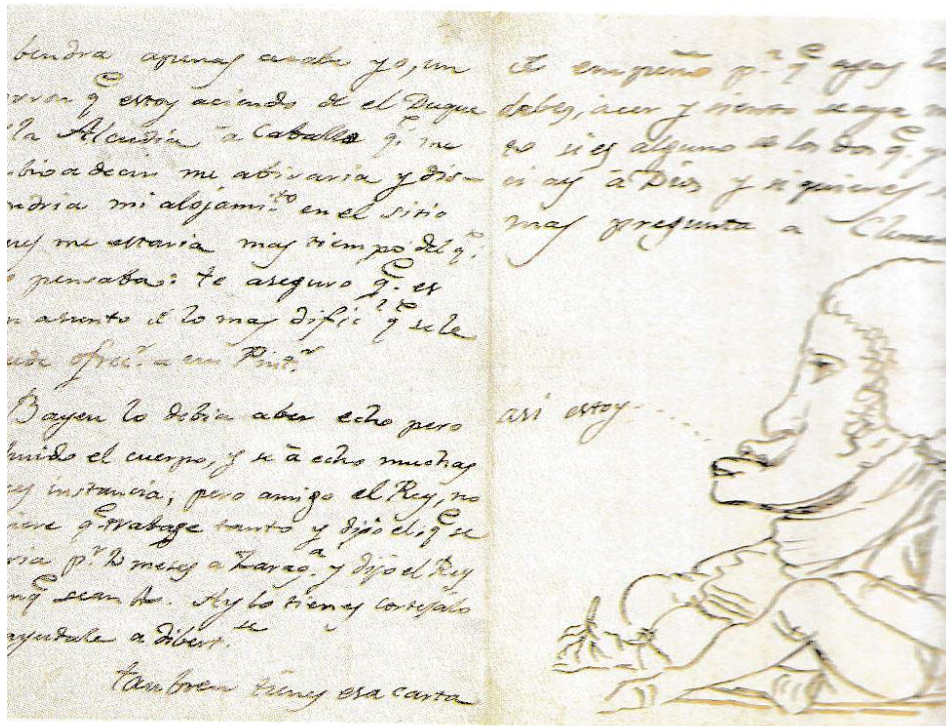 bendra apenas acabe yo, un
q.e estoy aciendo de el Duque
la Alcudia a Caballo q.e me
bio a decir me abisaria y dis-
ndria mi alojami.to en el sitio
ues me estaria mas tiempo del q.e
pensaba: te aseguro q.e es
asunto de lo mas dificil q.e se le
uede ofrec.r a un Pint.r
Bayeu lo debia aber echo pero
uido el cuerpo, y se à echo muchas
es instancia, pero amigo el Rey, no
iere q.e trabage tanto y dijo el, q.e se
ria p.r 2 meses a Zarag.a y dijo el Rey
nq.e sean 4o. Ay lo tienes cortejalo
ayudale a dibert.se
tanbien tienes esa carta
de enpeño p.a q.e agas lo
debes, acer y siento se aya
to si es alguno de los dos q.e
ci ay à Dios y si quieres
mas pregunta a Clemen
asi estoy